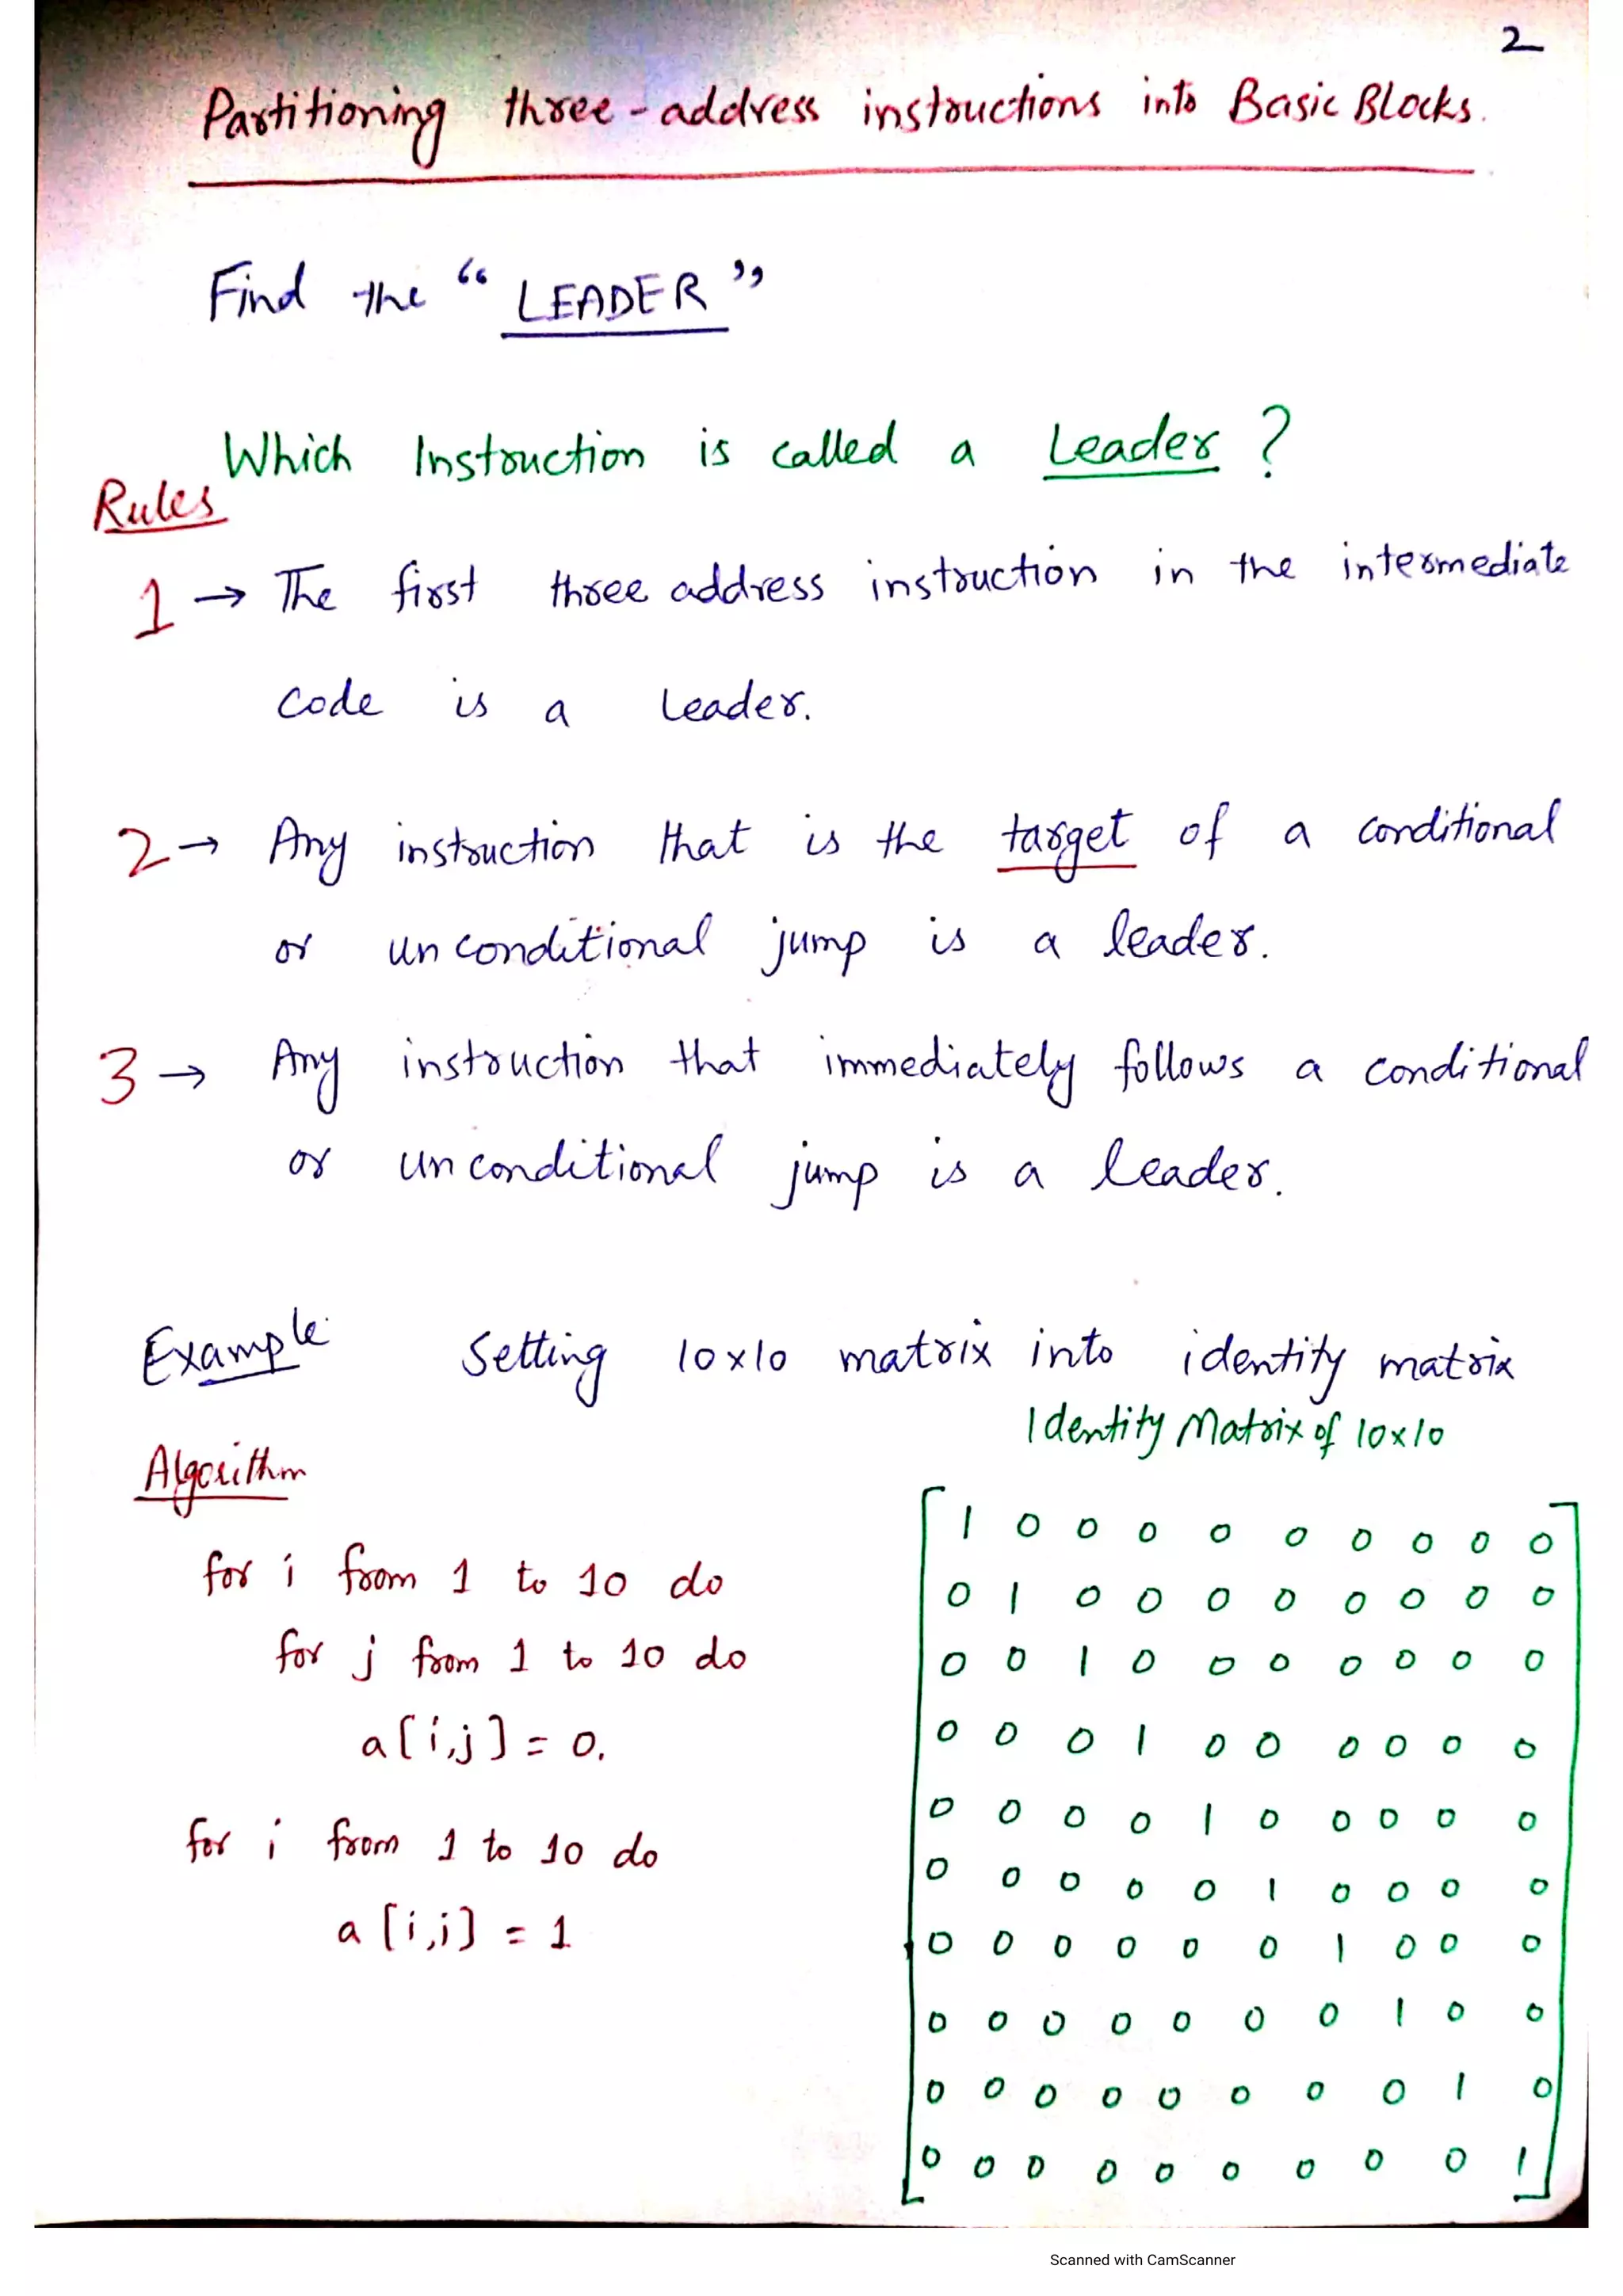 2
Partitioning three-address instructions into Basic Blocks.
Find the “LEADER”
Which Instruction is called a Leader ?
Rules
1 → The first three address instruction in the intermediate
code is a Leader.
2 → Any instruction that is the target of a conditional
or unconditional jump is a leader.
3 → Any instruction that immediately follows a conditional
or unconditional jump is a leader.
Example: Setting 10x10 matrix into identity matrix
Identity Matrix of 10x10
Algorithm
for i from 1 to 10 do
for j from 1 to 10 do
a[i,j] = 0.
for i from 1 to 10 do
a[i,i] = 1
1 0 0 0 0 0 0 0 0 0
0 1 0 0 0 0 0 0 0 0
0 0 1 0 0 0 0 0 0 0
0 0 0 1 0 0 0 0 0 0
0 0 0 0 1 0 0 0 0 0
0 0 0 0 0 1 0 0 0 0
0 0 0 0 0 0 1 0 0 0
0 0 0 0 0 0 0 1 0 0
0 0 0 0 0 0 0 0 1 0
0 0 0 0 0 0 0 0 0 1
Scanned with CamScanner